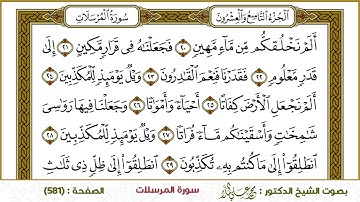 سُورَةُ الْمُرْسَلَاتِ
الْجُزْءُ التَّاسِعُ وَالْعِشْرُونَ
أَلَمْ نَخْلُقكُّم مِّن مَّآءٍ مَّهِينٍ ٢٠ فَجَعَلْنَٰهُ فِى قَرَارٍ مَّكِينٍ ٢١ إِلَىٰ
قَدَرٍ مَّعْلُومٍ ٢٢ فَقَدَرْنَا فَنِعْمَ الْقَٰدِرُونَ ٢٣ وَيْلٌ يَوْمَئِذٍ لِّلْمُكَذِّبِينَ ٢٤
أَلَمْ نَجْعَلِ الْأَرْضَ كِفَاتًا ٢٥ أَحْيَآءً وَأَمْوَٰتًا ٢٦ وَجَعَلْنَا فِيهَا رَوَٰسِىَ
شَٰمِخَٰتٍ وَأَسْقَيْنَٰكُم مَّآءً فُرَاتًا ٢٧ وَيْلٌ يَوْمَئِذٍ لِّلْمُكَذِّبِينَ ٢٨
انطَلِقُوٓا۟ إِلَىٰ مَا كُنتُم بِهِۦ تُكَذِّبُونَ ٢٩ انطَلِقُوٓا۟ إِلَىٰ ظِلٍّ ذِى ثَلَٰثِ
بصوت الشيخ الدكتور :
سورة المرسلات
الصفحة : (581)